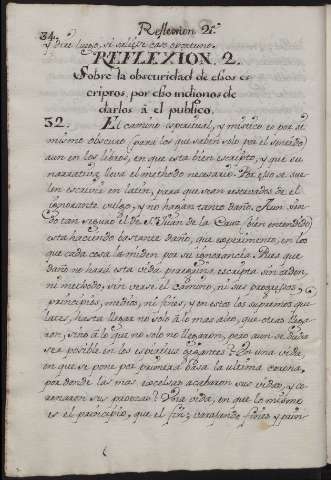 34.
Reflexion 2ª.
y diré luego, si saliese caso oportuno.
REFLEXION. 2.
Sobre la obscuridad de esos es
criptos, por eso indignos de
darlos â el publico.
32. El camino espiritual, y mistico es por si
mismo obscuro (para los que saben solo por el sonido)
aun en los libros, en que esta bien escripto, y que su
narrativa lleva el methodo necesario. Por eso se sue-
len escribir en latin, para que sean reservados de el
ignorante vulgo, y no hagan tanto daño. Aun sien
do tan seguro el de S.ⁿ Juan de la Cruz (bien entendido)
esta haciendo bastante daño, que experimento, en los
que cada cosa la miden por su ignorancia. Pues que
daño no hará esta vida peregrina escripta sin orden,
ni methodo, sin verse el camino, ni sus progresos,
principios, medios, ni fines, y en estos los supremos que
hasta llegar no solo â lo mas alto, que otros llega
ron, sino â lo que no solo no llegaron, pero aun se duda
sea posible en los espiritus gigantes? En una vida,
en que se pone por primera basa la ultima corona,
por donde las mas excelsas acabaron sus vidas, y co
ronaron sus proezas? Una vida, en que lo mismo
es el principio, que el fin; barajando fines, y prin